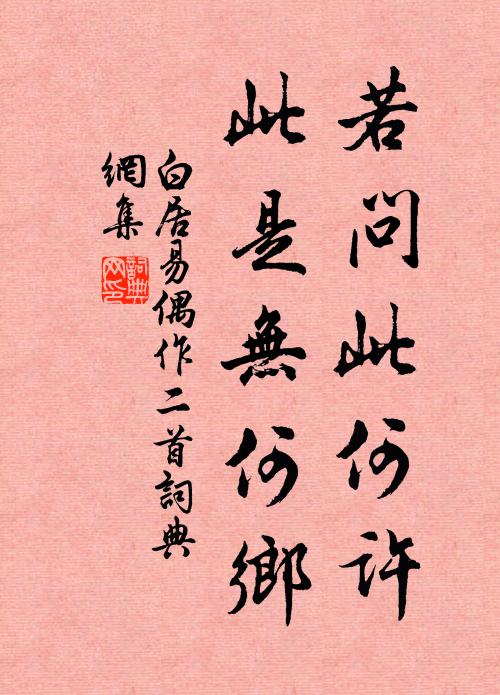 若問此何許
此是無何鄉
白居易偶作二首詞典
網集
詞典
网印